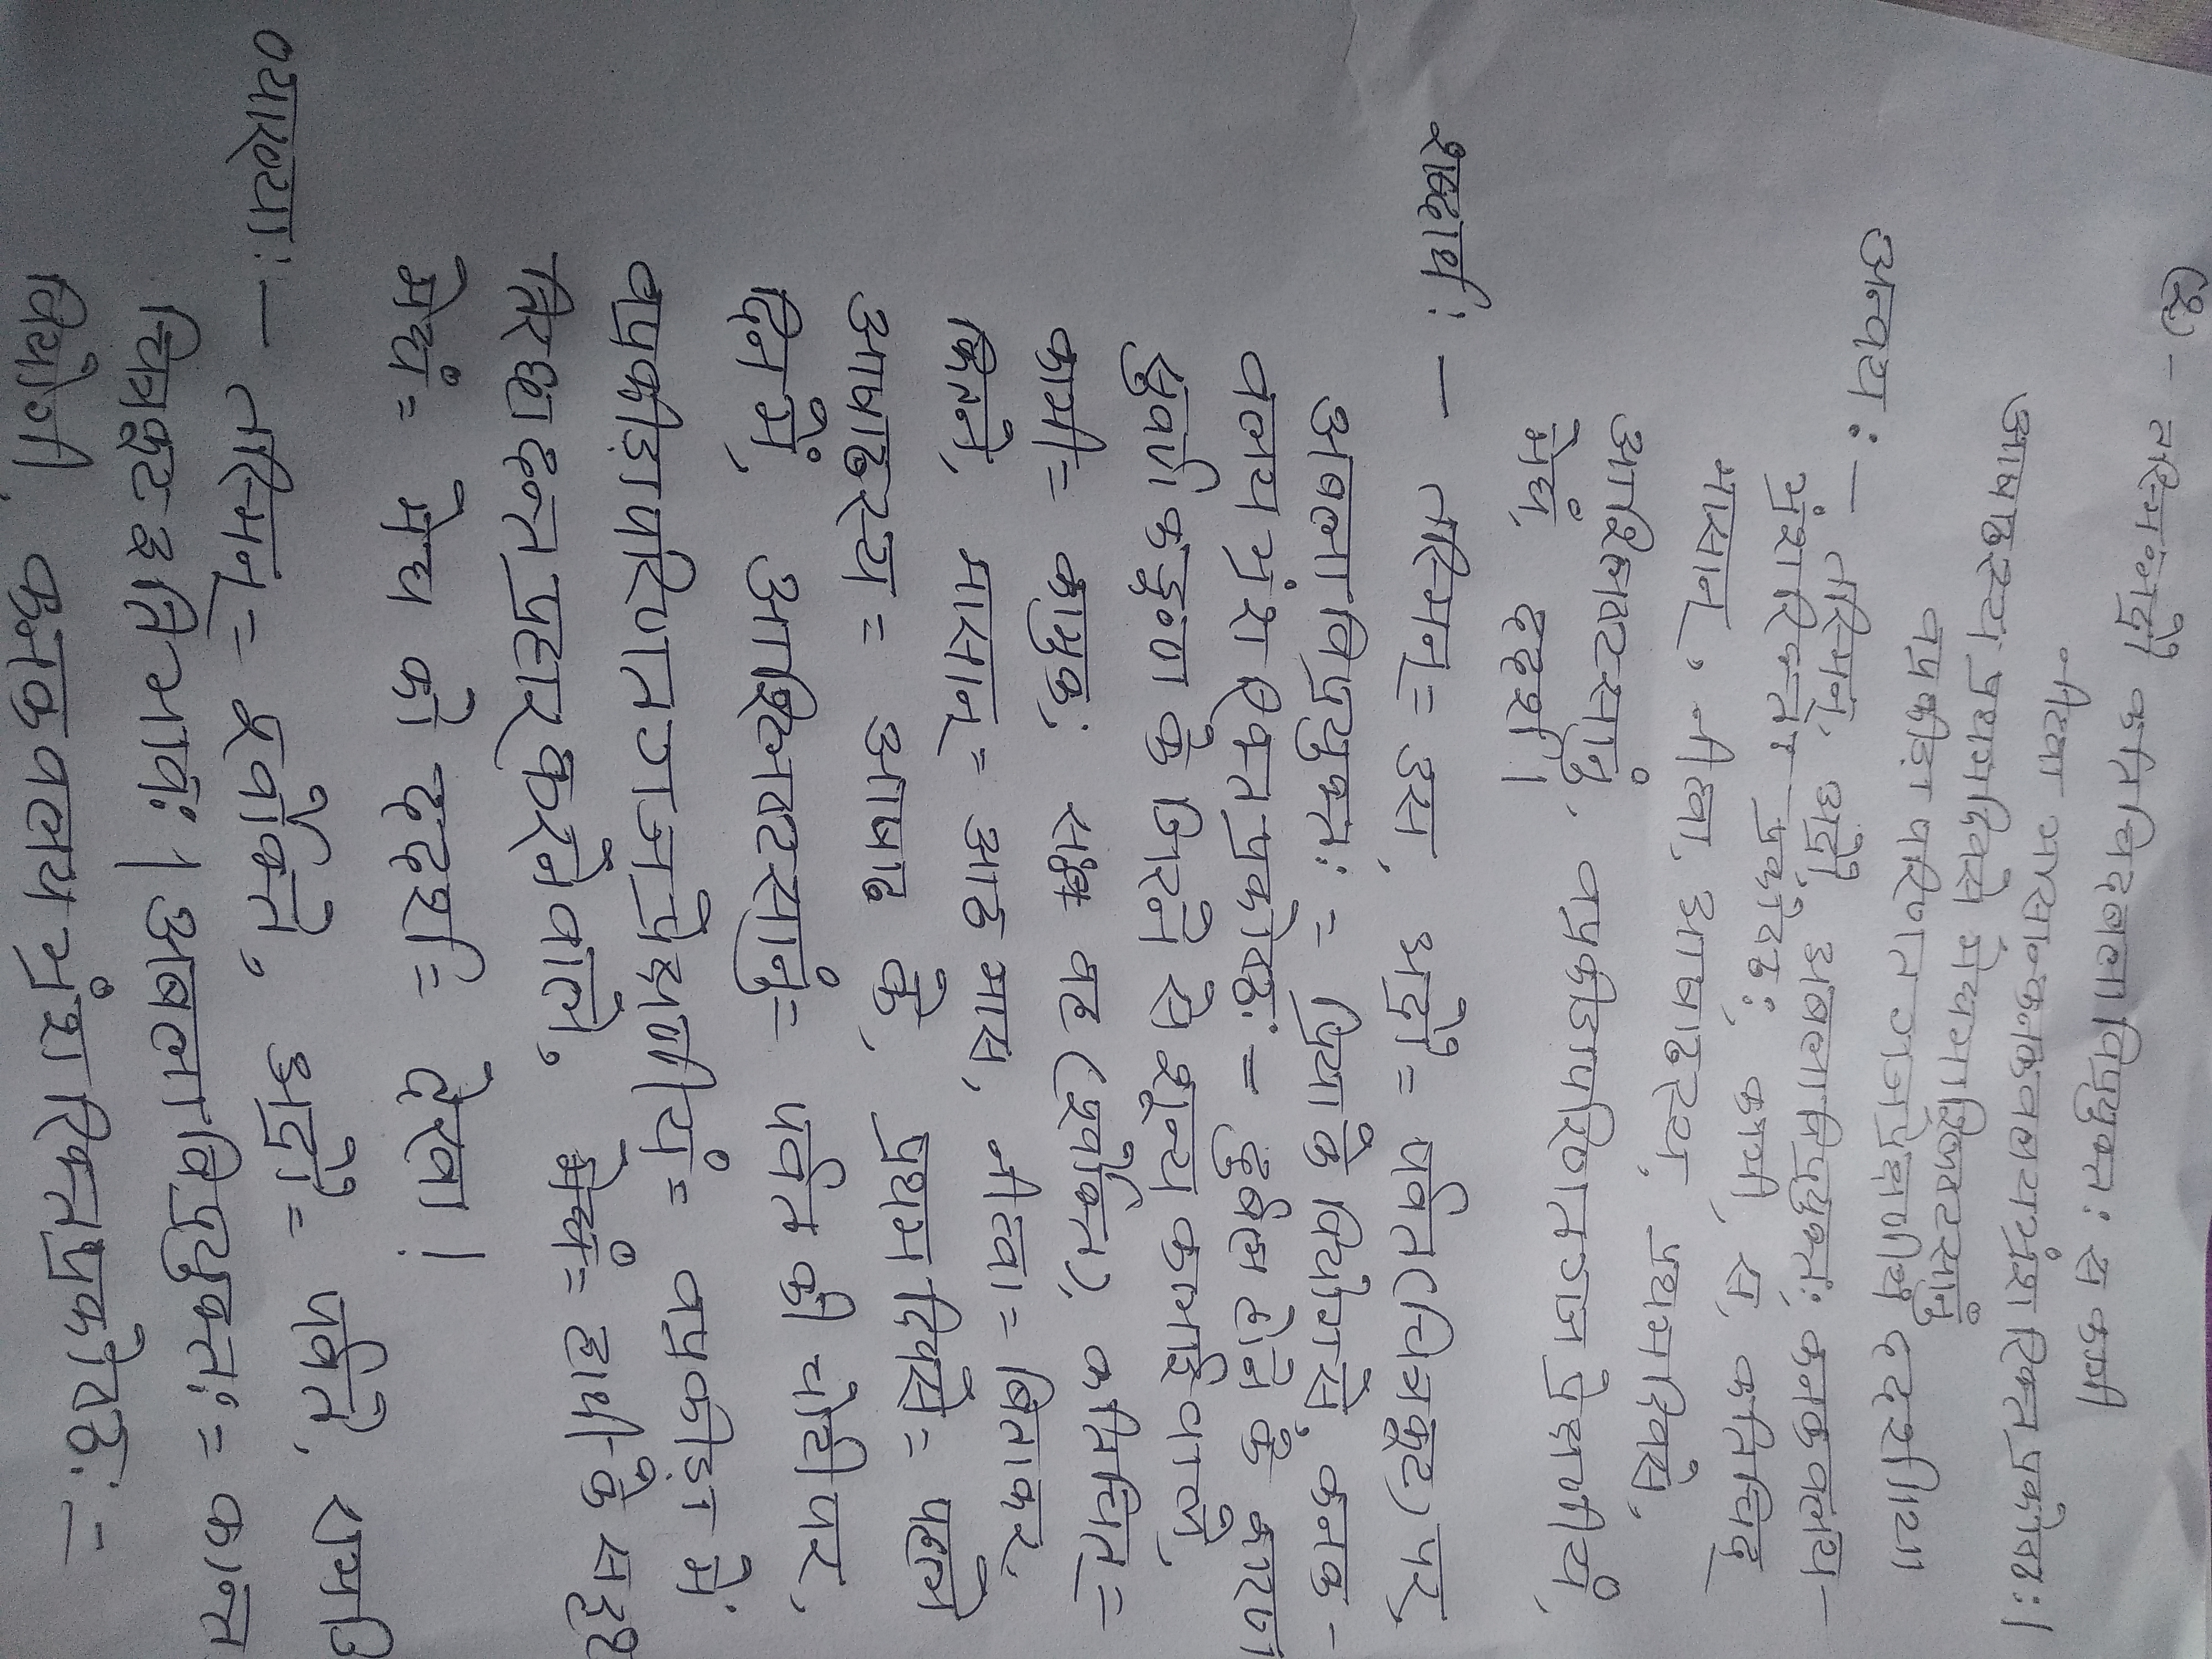 (2) - तस्मिन्नद्रौ कतिचिदबलाविप्रयुक्तः स कामी
नीत्वा मासान्कनकवलयभ्रंशरिक्तप्रकोष्ठः।
आषाढस्य प्रथमदिवसे मेघमाश्लिष्टसानुं
वप्रक्रीडा परिणतगजप्रेक्षणीयं ददर्श।।२।।
अन्वय :- तस्मिन्, अद्रौ, अबलाविप्रयुक्तः, कनकवलय-
भ्रंशरिक्तप्रकोष्ठः, कामी, स, कतिचिद्
मासान्, नीत्वा, आषाढस्य, प्रथमदिवसे,
आश्लिष्टसानुं, वप्रक्रीडापरिणतगजप्रेक्षणीयं,
मेघं, ददर्श।
शब्दार्थ :- तस्मिन्= उस, अद्रौ= पर्वत(चित्रकूट) पर,
अबलाविप्रयुक्तः = प्रिया के वियोग से, कनक-
वलयभ्रंशरिक्तप्रकोष्ठः = दुर्बल होने के कारण
सुवर्ण कंङ्कण के गिरने से शून्य कलाई वाले,
कामी= कामुक, सः यक्ष वह (पूर्वोक्त), कतिचित्=
कितने, मासान्= आठ मास, नीत्वा= बिताकर,
आषाढस्य= आषाढ के, प्रथमदिवसे= पहले
दिन में, आश्लिष्टसानुं= पर्वत की चोटी पर,
वप्रक्रीडापरिणतगजप्रेक्षणीयं= वप्रक्रीड़ा में
तिरछा दन्तप्रहार करने वाले, हाथी के सदृश
मेघं= मेघ को ददर्श= देखा।
व्याख्या :- तस्मिन्= पूर्वोक्ते, अद्रौ= पर्वते,
चित्रकूट इति भावः। अबलाविप्रयुक्तः = कान्ता
वियोगी, कनकवलयभ्रंशरिक्तप्रकोष्ठः =